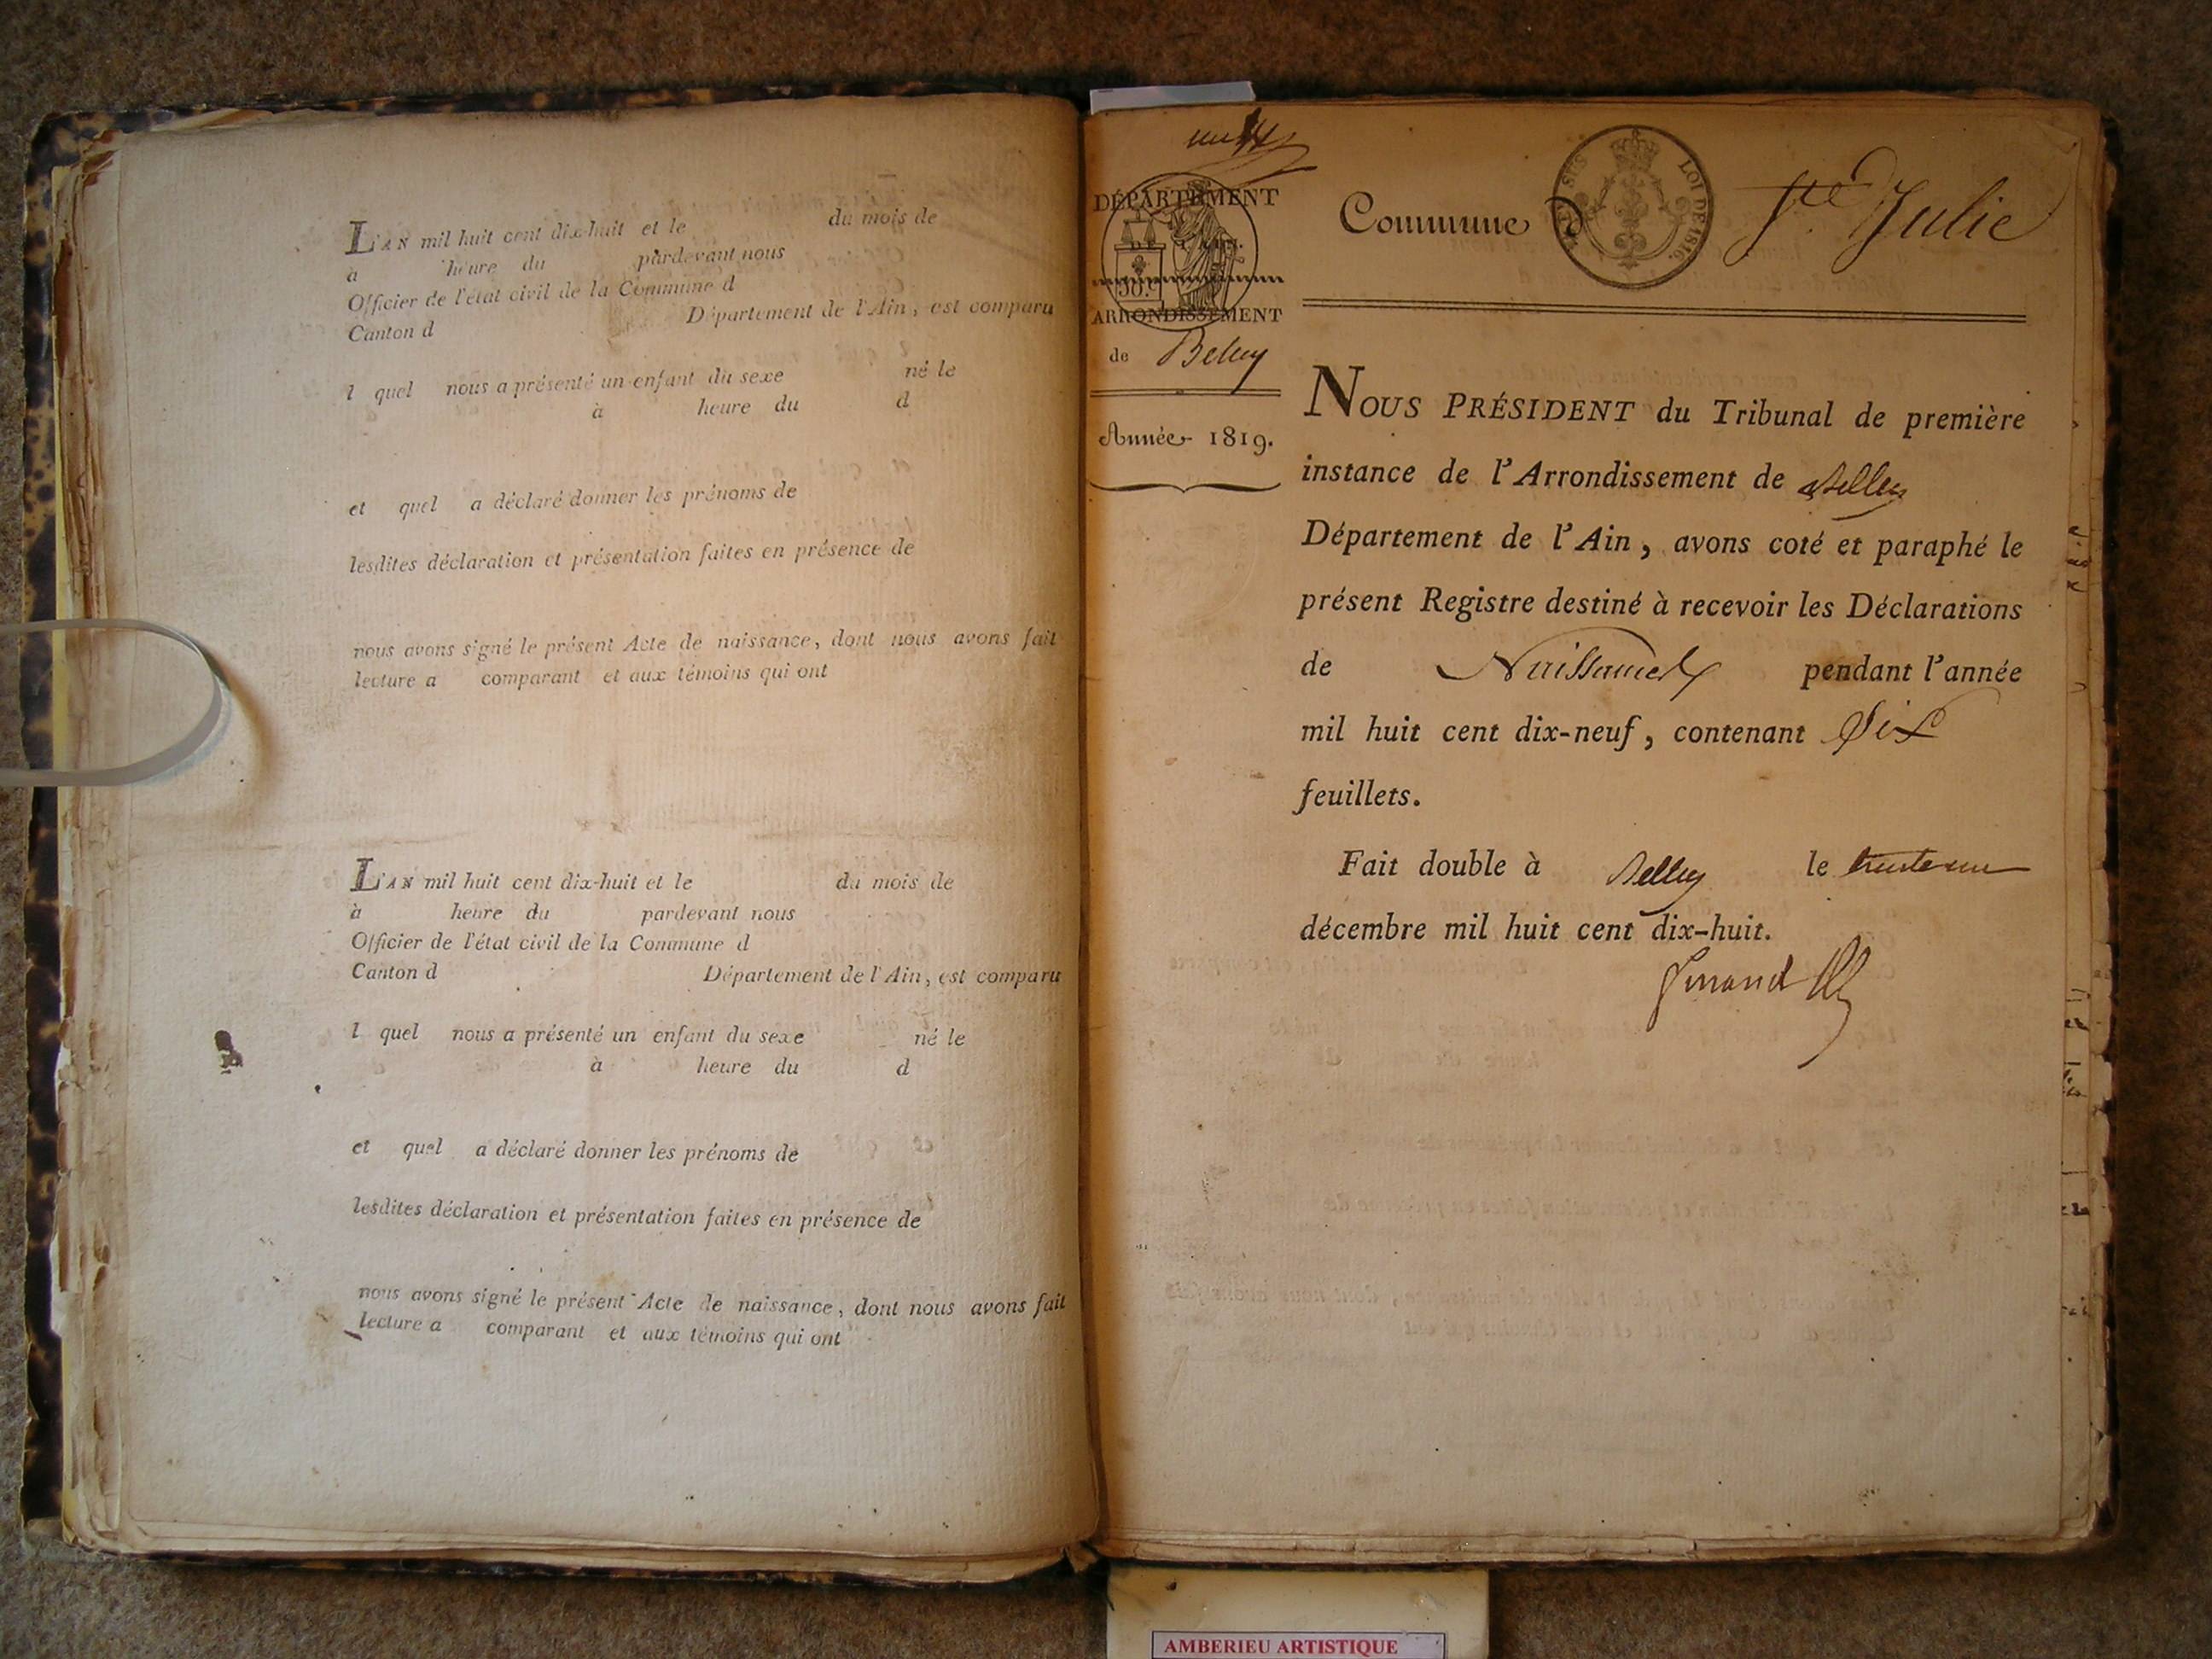 L'AN mil huit cent dix-huit et le du mois de
à heure du pardevant nous
Officier de l'état civil de la Commune d
Canton d Département de l'Ain, est comparu
l quel nous a présenté un enfant du sexe né le
à heure du d
et quel a déclaré donner les prénoms de
lesdites déclaration et présentation faites en présence de
nous avons signé le présent Acte de naissance, dont nous avons fait
lecture a comparant et aux témoins qui ont
L'AN mil huit cent dix-huit et le du mois de
à heure du pardevant nous
Officier de l'état civil de la Commune d
Canton d Département de l'Ain, est comparu
l quel nous a présenté un enfant du sexe né le
à heure du d
et quel a déclaré donner les prénoms de
lesdites déclaration et présentation faites en présence de
nous avons signé le présent Acte de naissance, dont nous avons fait
lecture a comparant et aux témoins qui ont
DÉPARTEMENT
50.c
ARRONDISSEMENT
de Belley
Année 1819.
Commune d Ste Julie
LOI DE 1816
NOUS PRÉSIDENT du Tribunal de première
instance de l'Arrondissement de Belley
Département de l'Ain, avons coté et paraphé le
présent Registre destiné à recevoir les Déclarations
de Naissances pendant l'année
mil huit cent dix-neuf, contenant Six
feuillets.
Fait double à Belley le trente un
décembre mil huit cent dix-huit.
AMBERIEU ARTISTIQUE